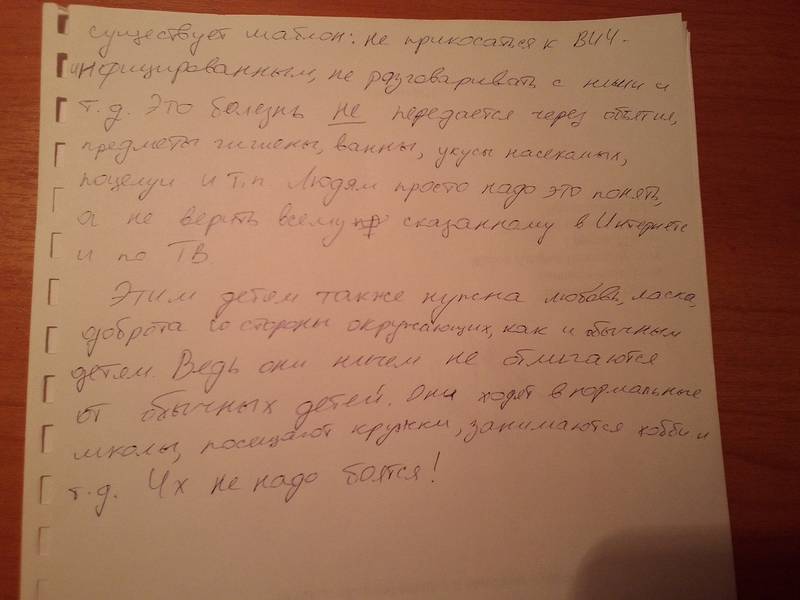 существует шаблон: не прикосаться к ВИЧ-
инфицированным, не разговаривать с ними и
т.д. Это болезнь не передается через объятия,
предметы гигиены, ванны, укусы насекомых,
поцелуи и т.п Людям просто надо это понять,
а не верить всему сказанному в Интернете
и по ТВ.
Этим детям также нужна любовь, ласка,
доброта со стороны окружающих, как и обычным
детям. Ведь они ничем не отличаются
от обычных детей. Они ходят в нормальные
школы, посещают кружки, занимаются хобби и
т.д. Их не надо боятся!